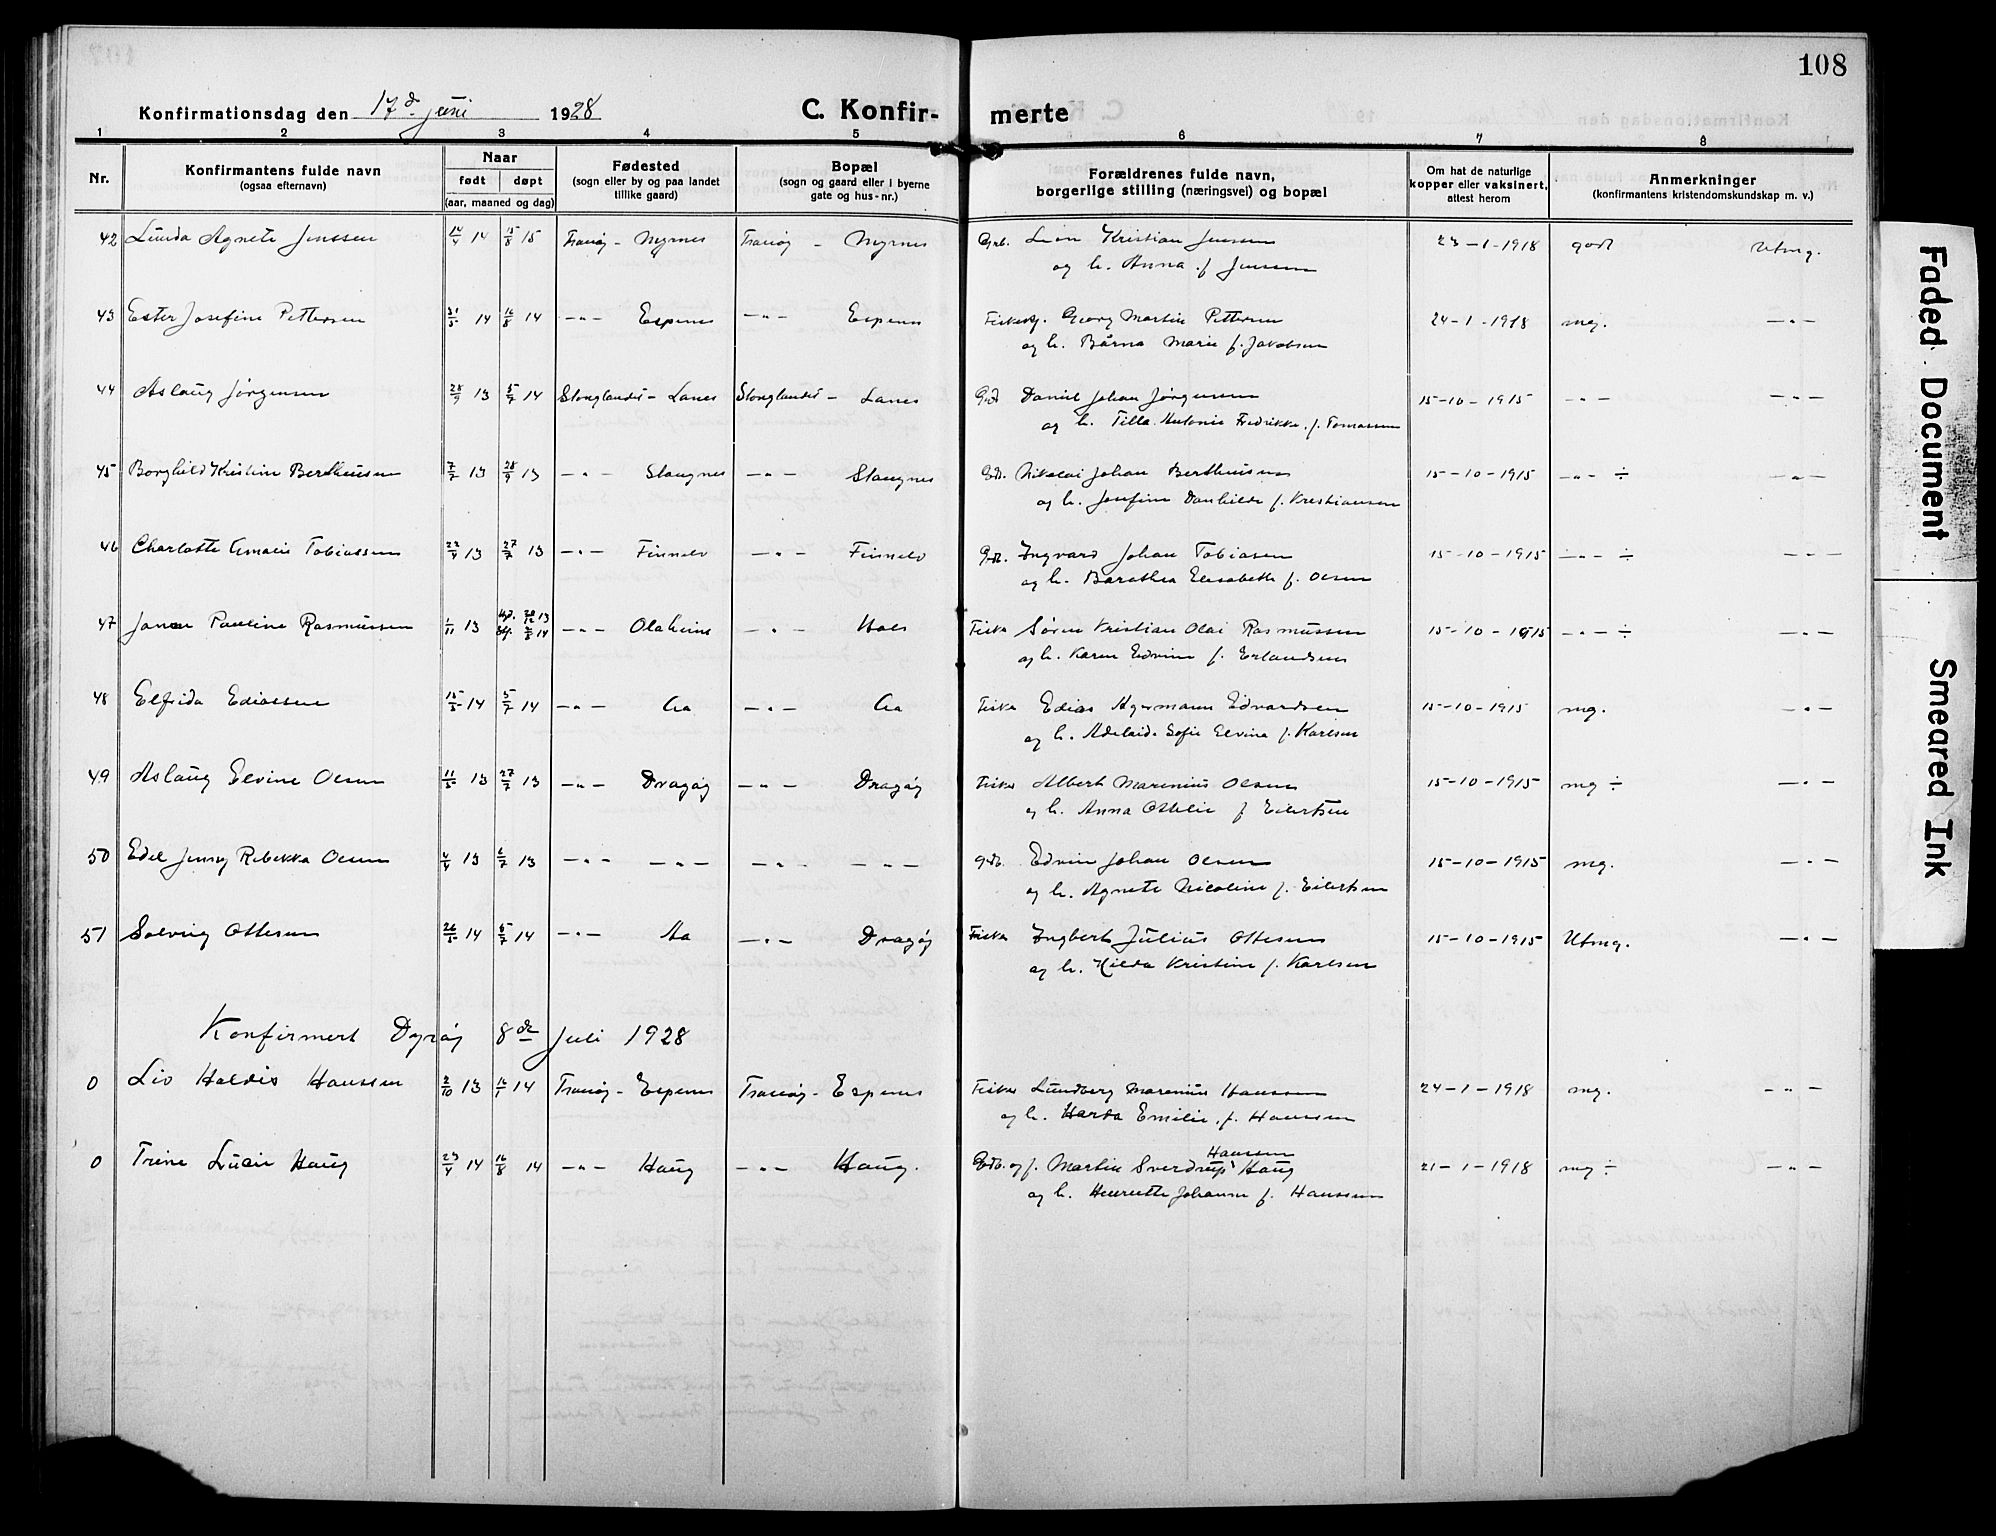 108
Konfirmationsdag den 17d juni 1928 C. Konfir- merte
1 2 3 4 5 6 7 8
Nr. Konfirmantens fulde navn (ogsaa efternavn) Naar født døpt (aar, maaned og dag) Fødested (sogn eller by og paa landet tillike gaard) Bopæl (sogn og gaard eller i byerne gate og hus-nr.) Forældrenes fulde navn, borgerlige stilling (næringsvei) og bopæl Om hat de naturlige kopper eller vaksinert, attest herom Anmerkninger (konfirmantens kristendomskundskap m. v.)
42 Agnete Jenssen 14/4 14 15/8 15 Tranøy - Myrnes Tranøy - Myrnes Kristian Jenssen 23-1-1918 godt Utmg.
og h. Anna f. Jenssen
43 Ester Josefine Pettersen 31/5 14 16/8 14 -"- Espenes -"- Espenes Georg Martin Pettersen 24-1-1918 mg. -"-
og h. Bårna Marie f. Jakobsen
44 Aslaug Jørgensen 28/9 13 5/7 14 Stonglandet - Lanes Stonglandet - Lanes Daniel Johan Jørgensen 15-10-1915 -"- -"-
og h. Tilla Antonie Fredrikke f. Tomassen
45 Borghild Kristine Bertheusen 7/7 13 28/9 13 -"- Slaugnes -"- Slaugnes Nikolai Johan Bertheusen 15-10-1915 -"- ÷ -"-
og h. Josefine Danhilde f. Kristiansen
46 Charlotte Amalie Tobiassen 22/4 13 27/7 13 -"- Finnelv -"- Finnelv Ingvard Johan Tobiasen 15-10-1915 -"- ÷ -"-
og h. Barathea Elisabeth f. Olsen
47 Pauline Rasmussen 1/11 13 -"- Olaheim -"- Hals Fisker Søren Kristian Olai Rasmussen 15-10-1915 -"- ÷ -"-
og h. Karen Edvine f. Erlandsen
48 Elfrida Ediassen 15/5 14 5/7 14 -"- Aa -"- Aa Fisker Edias Agermann Edvardsen 15-10-1915 mg. -"-
og h. Adelaide Sofie Elvina f. Karlsen
49 Aslaug Elvine Olsen 11/5 13 27/7 13 -"- Dragøy -"- Dragøy Fisker Albert Marenius Olsen 15-10-1915 mg ÷ -"-
og h. Anna Othelie f. Eilertsen
50 Edel Jenny Rebekka Olsen 4/4 13 6/7 13 -"- -"- -"- -"- Edvin Johan Olsen 15-10-1915 mg. -"-
og h. Agnete Nicoline f. Eilertsen
51 Solveig Ottesen 26/5 14 5/7 14 -"- Aa -"- Dragøy Fisker Ingbert Julius Ottesen 15-10-1915 Utmg. -"-
og h. Hilda Kristine f. Karlsen
Konfirmert Dyrøy 8de Juli 1928
0 Liv Haldis Hanssen 2/10 13 14 Tranøy - Espenes Tranøy - Espenes Fisker Lundberg Marenius Hanssen 24-1-1918 mg. -"-
og h. Harda Emilie f. Hanssen
0 Trine Lucie Haug 23/4 14 16/8 14 -"- Haug -"- Haug. Gdb. og f. Martin Sverdrup Hanssen Haug 21-1-1918 mg ÷ -"-
og h. Henriette Johanne f. Hanssen
Faded Document
Smeared Ink